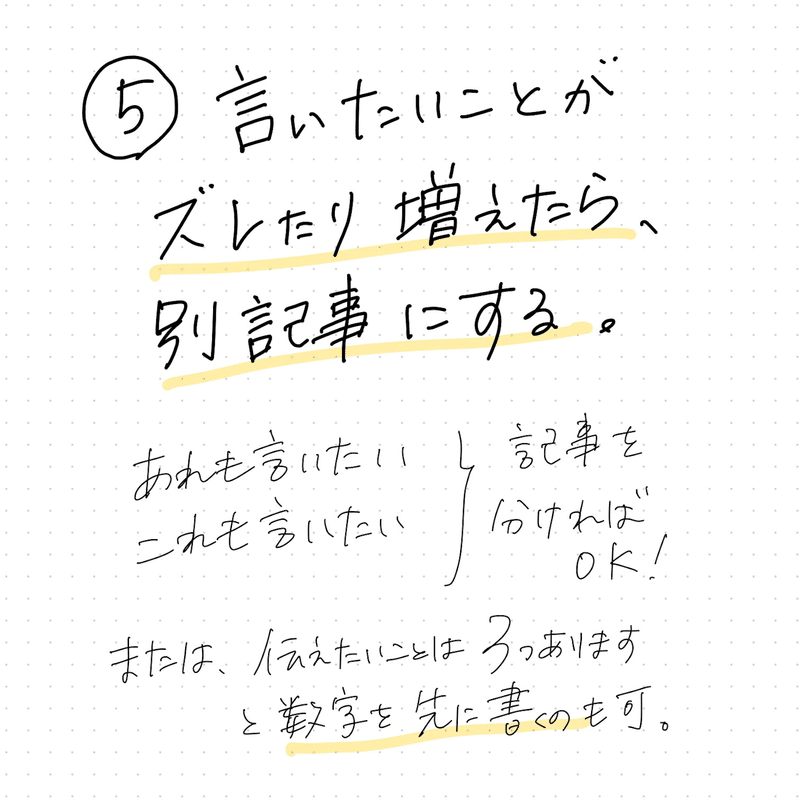 ⑤ 言いたいことが
ズレたり 増えたら、
別記事にする。
あれも言いたい
これも言いたい
記事を
分ければ
OK!
または、伝えたいことは 3つあります
と 数字を 先に書くのも可。